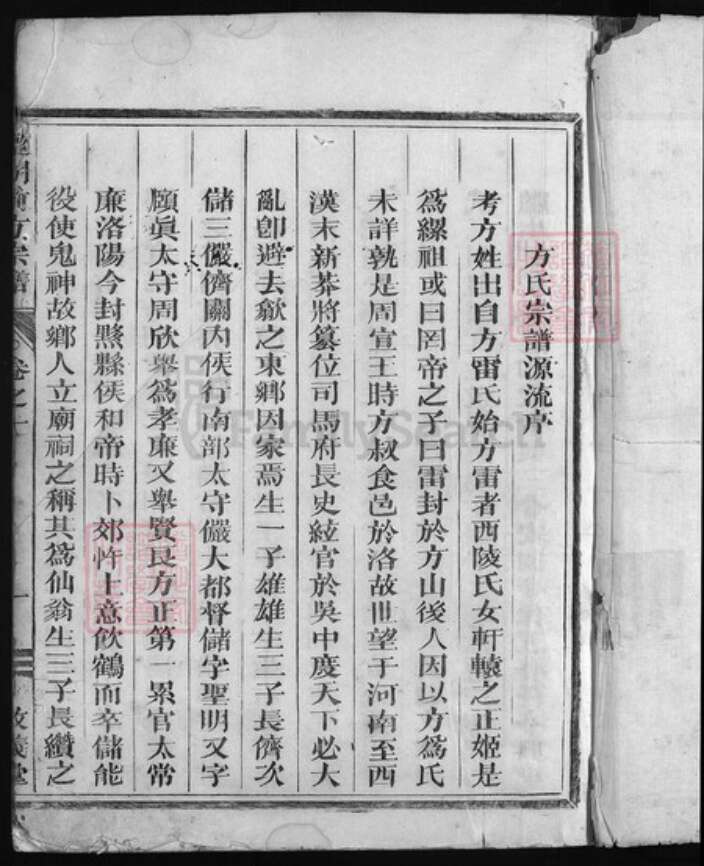 方氏宗譜源流序
考方姓出自方雷氏始方雷者西陵氏女軒轅之正姬是
爲纙祖或曰罔帝之子曰雷封於方山後人因以方爲氏
未詳孰是周宣王時方叔食邑於洛故世望于河南至西
漢末新莽將篡位司馬府長史紘官於吳中度天下必大
亂卽避去歙之東鄉因家焉生一子雄雄生三子長儕次
儲三儼儕關內侯行南部太守儼大都督儲字聖明又字
頤眞太守周欣舉爲孝廉又舉賢良方正第一累官太常
廉洛陽令封黟縣侯和帝時卜郊忤上意飲鶴而卒儲能
役使鬼神故鄉人立廟祠之稱其爲仙翁生三子長纘之
方宗譜
卷之一
FamilySearch